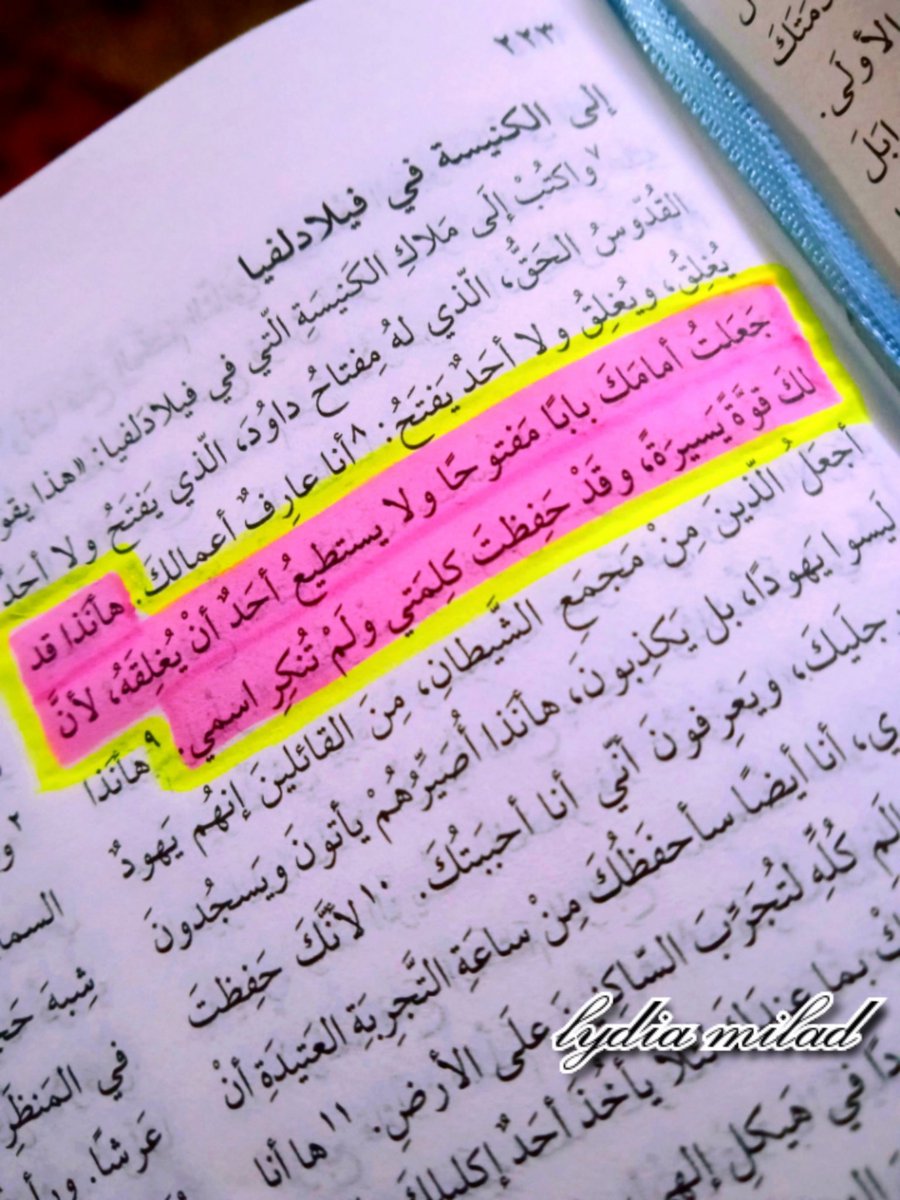 ٢٢٣
إلى الكنيسة في فيلادلفيا
٧واكتُبْ إلَى مَلاكِ الكَنيسَةِ الّتي في فيلادَلفيا: «هذا يقو
القُدّوسُ الحَقُّ، الّذي لهُ مِفتاحُ داوُدَ، الّذي يَفتَحُ ولا أحَدٌ
يُغلِقُ، ويُغلِقُ ولا أحَدٌ يَفتَحُ: ٨أنا عارِفٌ أعمالكَ. هأنَذا قد
جَعَلتُ أمامَكَ بابًا مَفتوحًا ولا يستطيعُ أحَدٌ أنْ يُغلِقَهُ، لأنَّ
لكَ قوَّةً يَسيرَةً، وقَدْ حَفِظتَ كلِمَتي ولَمْ تُنكِرِ اسمي. ٩هأنَذا
أجعَلُ الّذينَ مِنْ مَجمَعِ الشَّيطانِ، مِنَ القائلينَ إنهُم يَهودٌ
ليسوا يَهودًا، بل يَكذِبونَ، هأنَذا أُصَيِّرُهُمْ يأتونَ ويَسجُدونَ
ويَعرِفونَ أنّي أنا أحبَبتُكَ. ١٠لأنَّكَ حَفِظتَ
أنا أيضًا سأحفَظُكَ مِنْ ساعَةِ التَّجرِبَةِ العَتيدَةِ أنْ
كُلِّهِ لتُجَرِّبَ علَى الأرضِ. ١١ها أنا
بما يأخُذَ أحَدٌ إكليلَكَ
في هَيكلِ إلهي
السما
شِبهَ حَجَ
في المَنظَرِ
عَرشًا.
الأولَى.
lydia milad